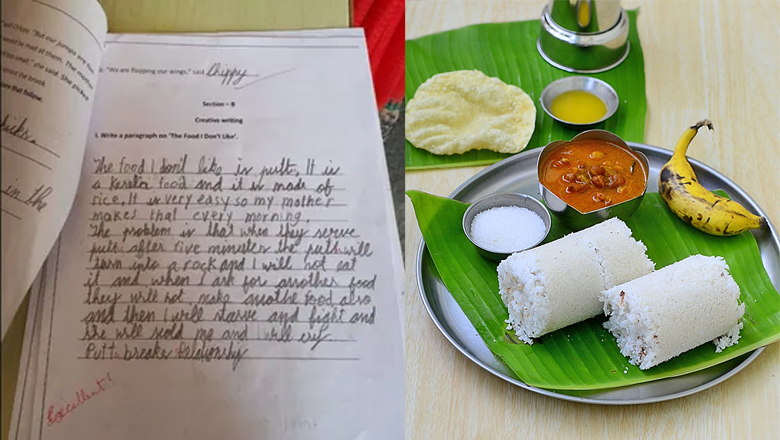 "But our jumps are
mad at them. The
she said. She picked
the brook.
that follow.
in the
"We are flapping our wings," said Chippy
Section – B
Creative writing
I. Write a paragraph on 'The Food I Don't Like'.
The food I don't like is putt. It is
a kerala food and it is made of
rice. It is very easy so my mother
makes that every morning.
The problem is that when they serve
putt after five minutes the putt will
turn into a rock and I will not eat
it and when I ask for another food
they will not make anothe food also
and then I will starve and fight and
she will scold me and I will cry
Putt breakes relationship
Excellent!